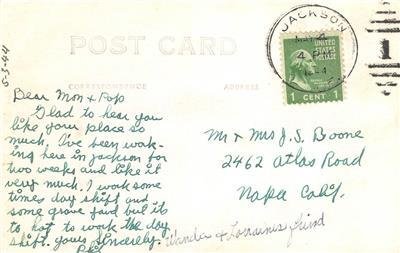 POST CARD
CORRESPONDENCE
ADDRESS
JACKSON
4
1
UNITED STATES
POSTAGE
1 CENT 1
5-3-44
Dear Mom & Pop
Glad to hear you
like your place so
much. I've been work-
ing here in Jackson for
two weeks and like it
very much. I work some
times day shift and
some grave yard but it
to hot to work the day
shift. yours Sincerely.
Mr & Mrs J.S. Boone
2462 Atlas Road
Napa Calif.
Wanda & Lorraines friend